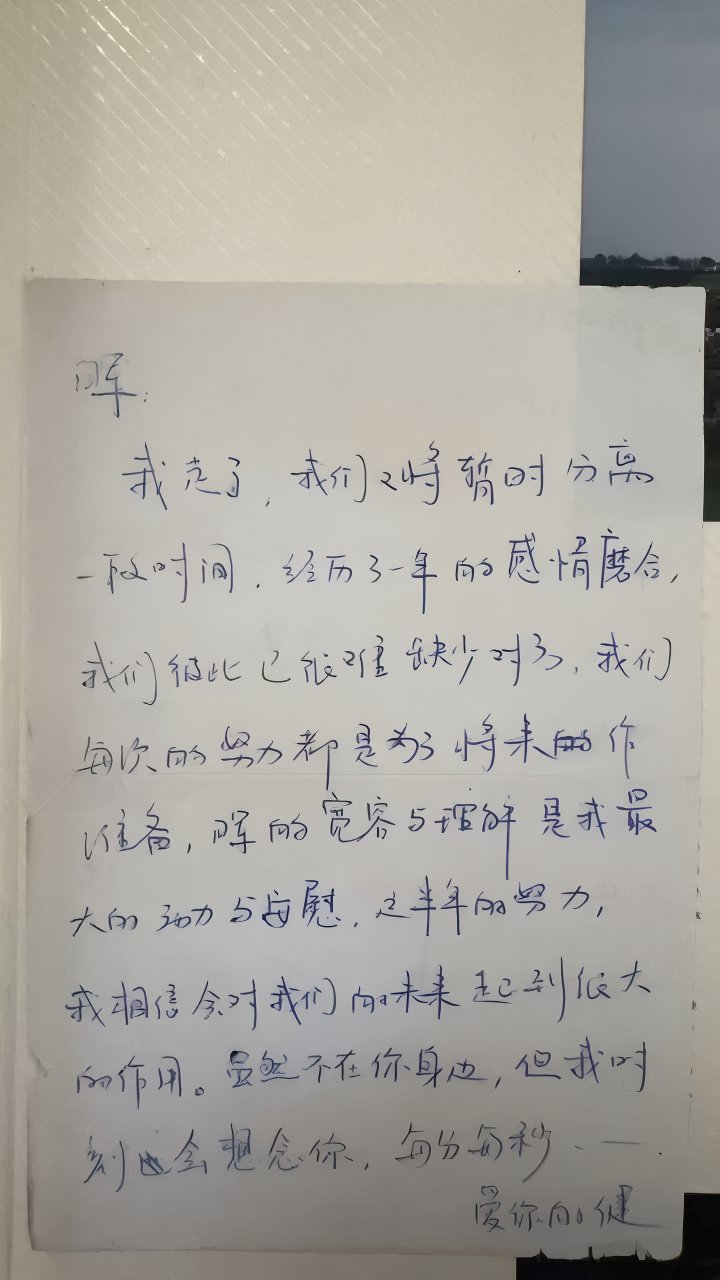 晖：
我走了，我们又将暂时分离
一段时间，经历了一年的感情磨合，
我们彼此已很难缺少对方，我们
每次的努力都是为了将来的作
准备，晖的宽容与理解是我最
大的动力与安慰，这半年的努力，
我相信会对我们的未来起到很大
的作用。虽然不在你身边，但我时
刻也会想念你，每分每秒——
爱你的健